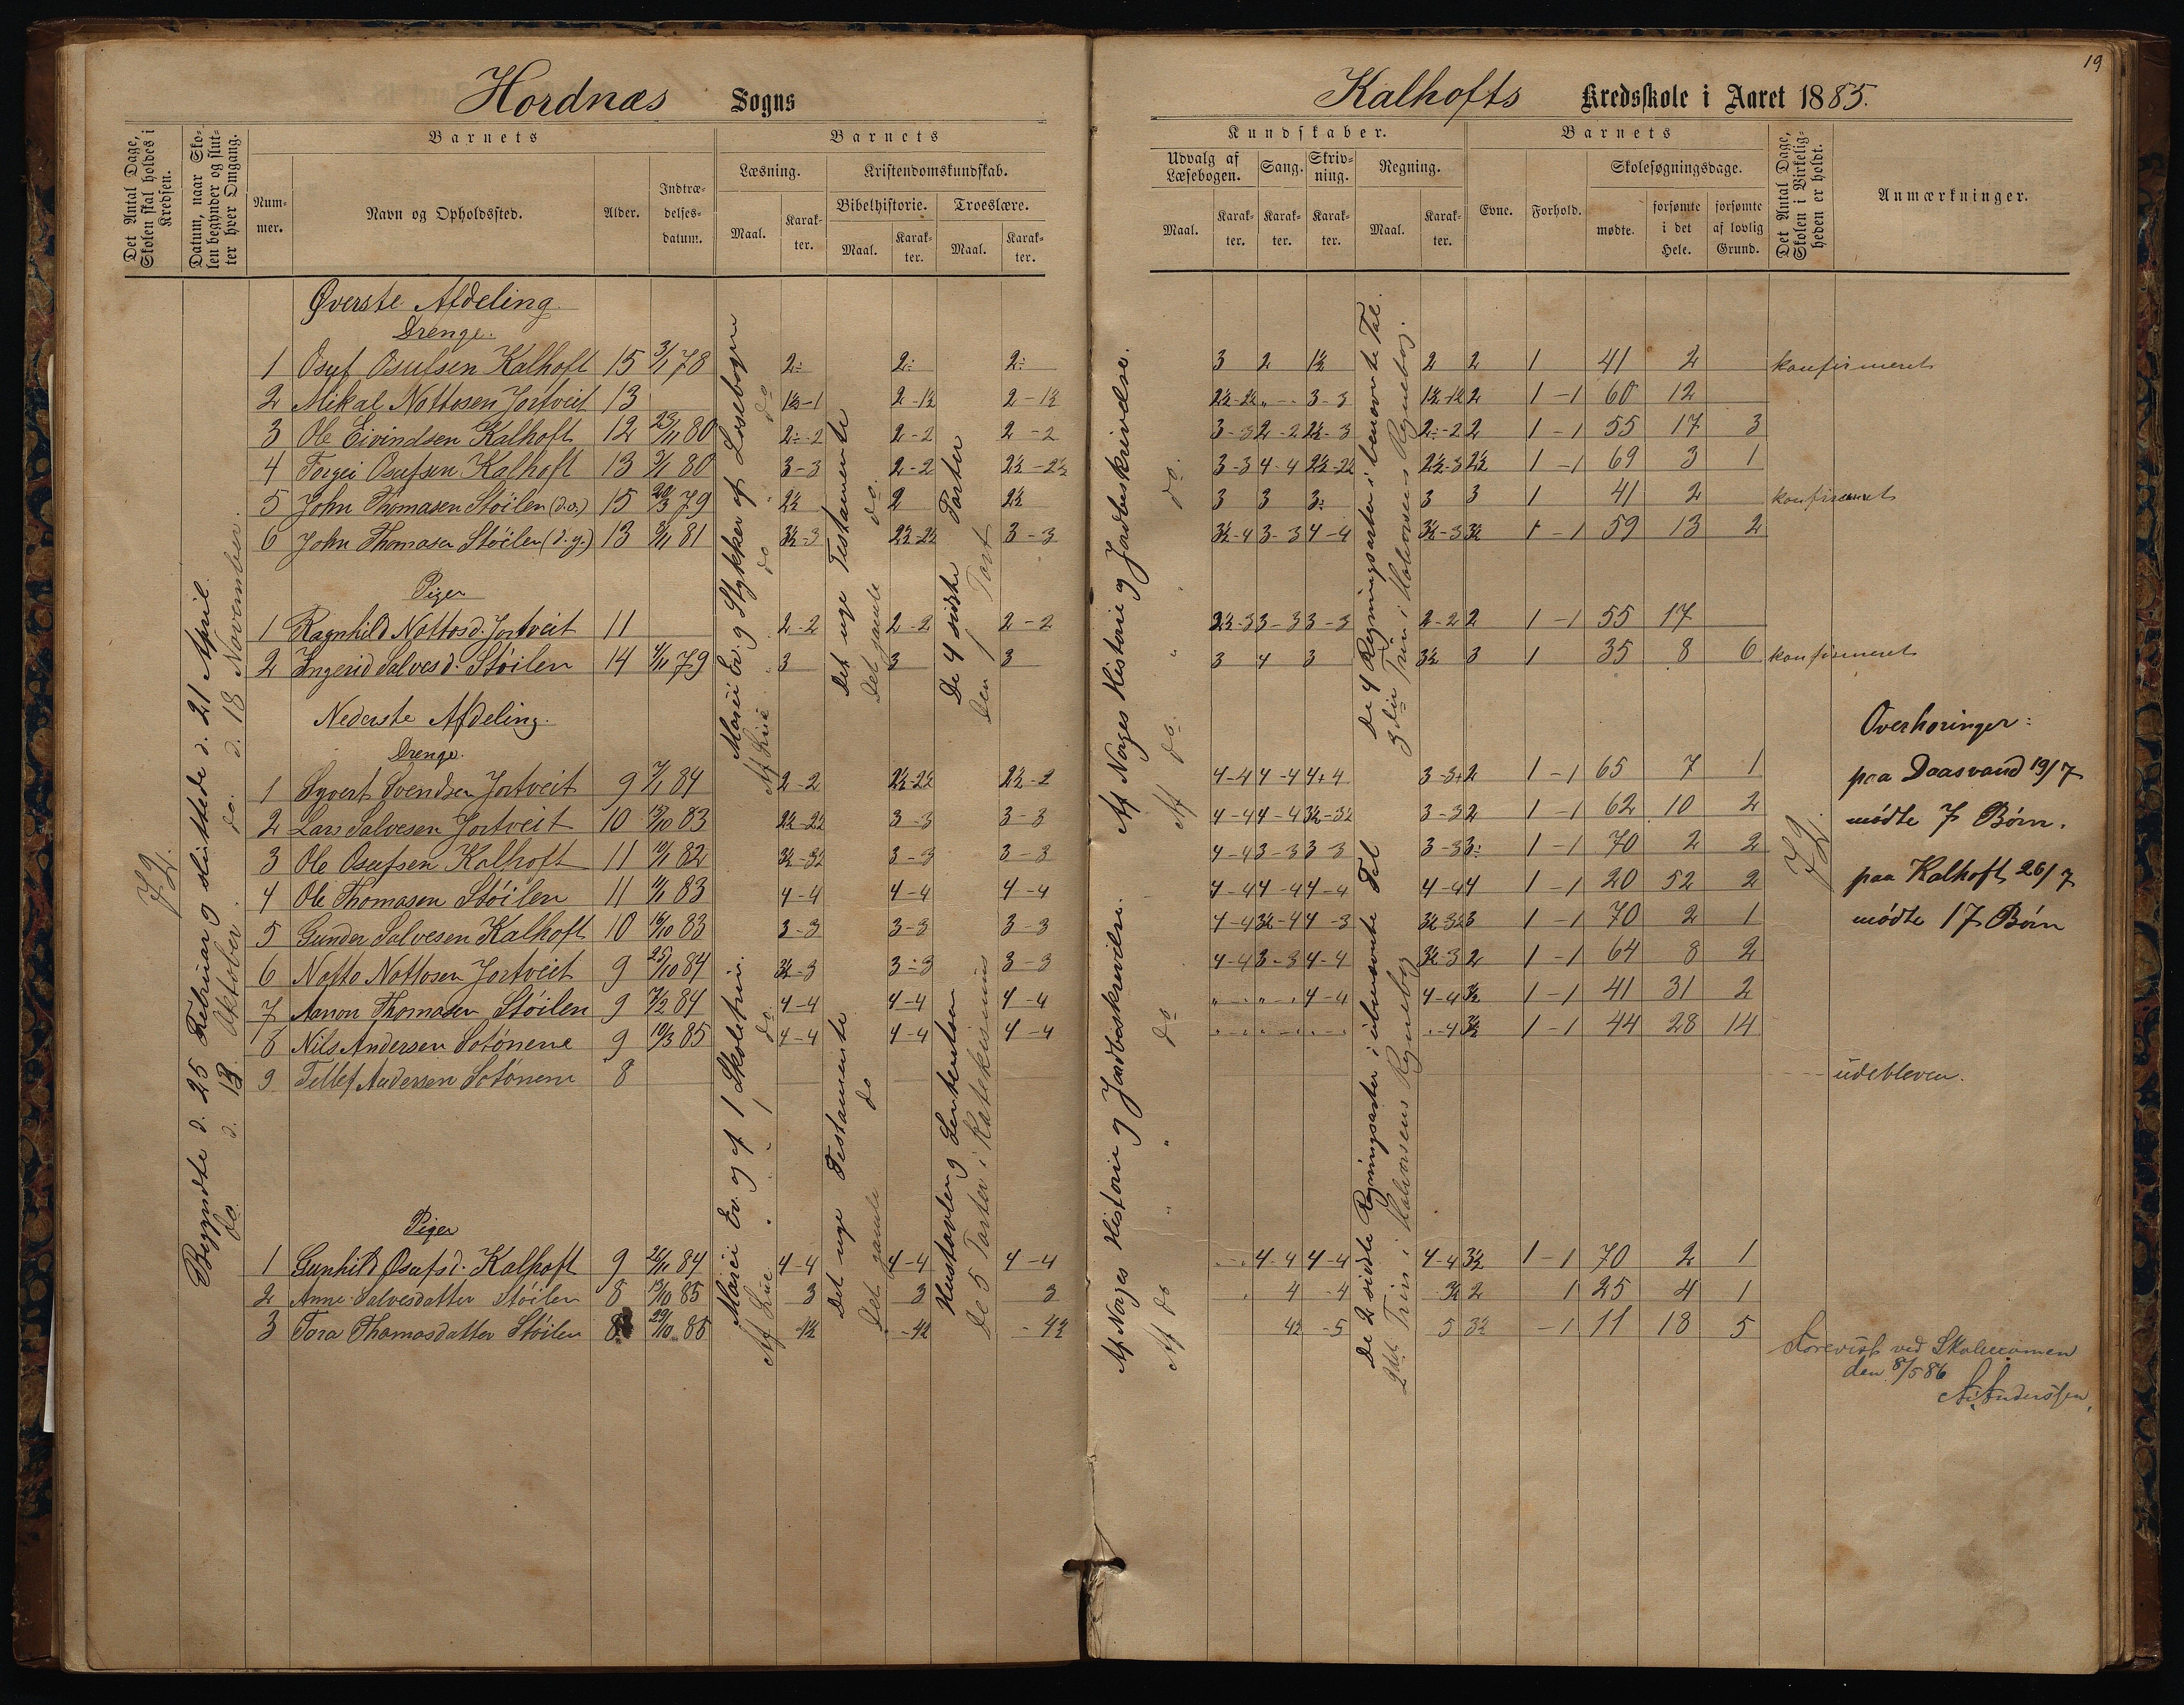 19
Hordnæs Sogns
Kalhofts Kredsskole i Aaret 1885.
Det Antal Dage, Skolen skal holdes i Kredsen.
Datum, naar Skolen begynder og slutter hver Omgang.
Barnets
Nummer.
Navn og Opholdssted.
Alder.
Indtrædelsesdatum.
Barnets
Læsning.
Maal.
Karakter.
Kristendomskundskab.
Bibelhistorie.
Maal.
Karakter.
Troeslære.
Maal.
Karakter.
Kundskaber.
Udvalg af Læsebogen.
Maal.
Karakter.
Sang.
Karakter.
Skrivning.
Karakter.
Regning.
Maal.
Karakter.
Barnets
Evne.
Forhold.
Skolesøgningsdage.
mødte.
forsømte i det Hele.
forsømte af lovlig Grund.
Det Antal Dage, Skolen i Virkeligheden er holdt.
Anmærkninger.
72.
Begyndte d. 25 Februar og sluttede d. 21 April.
do d. 13 Oktober. do. d. 18 November.
Øverste Afdeling.
Drenge.
1 Osuf Osufsen Kalhoft 15 3/1 78 2÷ 2÷ 2÷ 3 2 1½ 2 2 1 41 2 konfirmeret
2 Mikal Nottosen Jortveit 13 1½-1 2-1½ 2-1½ 2½-2½ „ - 3-3 1½-1½ 2 1-1 60 12
3 Ole Eivindsen Kalhoft 12 23/11 80 2÷-2 2-2 2-2 3-3 2-2 2½-3 2÷-2 2 1-1 55 17 3
4 Torgei Osufsen Kalhoft 13 80 3-3 2-2 2½-2½ 3-3 4-4 2½-2½ 2½-3 2½ 1-1 69 3 1
5 John Thomasen Støilen (d.æ.) 15 20/3 79 2½ 2 2½ 3 3 3÷ 3 3 1 41 2 konfirmeret
6 John Thomasen Støilen (d.y.) 13 81 3½-3 2½-2½ 3-3 3½-4 3-3 4-4 3½-3 3½ 1-1 59 13 2
Piger
1 Ragnhild Nottosd. Jortveit 11 2-2 2-2 2-2 2½-3 3-3 3-3 2-2 2 1-1 55 17
2 Ingerid Salvesd. Støilen 14 79 3 3 3 3 4 3 3½ 3 1 35 8 6 konfirmeret
Marci Ev. og Stykker af Læsebogen
Af Luc. " do do
Det nye Testamente
Det gamle do.
De 4 sidste Parter
Den 1 Part
Af Norges Historie og Jordbeskrivelse.
Af do. " do.
De 4 Regningsarter i benævnte Tal.
3die Trin i Halvorsens Regnebog.
Nederste Afdeling.
Drenge.
1 Syvert Svendsen Jortveit 9 7/1 84 2-2 2½-2½ 2½-2 4-4 4-4 4+4 3-3+ 2 1-1 65 7 1
2 Lars Salvesen Jortveit 10 15/10 83 2½-2½ 3-3 3-3 4-4 4-4 3½-3½ 3-3 2 1-1 62 10 2
3 Ole Osufsen Kalhoft 11 82 3½-3½ 3-3 3-3 4-4 3-3 3-3 3-3 3÷ 1-1 70 2 2
4 Ole Thomasen Støilen 11 83 4-4 4-4 4-4 4-4 4-4 4-4 4-4 4 1-1 20 52 2
5 Gunder Salvesen Kalhoft 10 16/10 83 3-3 3-3 3-3 4-4 3½-4 4-3 3½-3½ 3 1-1 70 2 1
6 Notto Nottosen Jortveit 9 25/10 84 3½-3 3-3 3-3 4-4 3-3 4-4 3½-3 2 1-1 64 8 2
7 Aanon Thomasen Støilen 9 7/2 84 4-4 4-4 4-4 4-4 4-4 3½ 1-1 41 31 2
8 Nils Andersen Sotønene 9 19/3 85 4-4 4-4 4-4 -4 3½ 1-1 44 28 14
9 Tellef Andersen Sotønene 8 udebleven.
Piger
1 Gunhild Osufsd. Kalhoft 9 26/11 84 4-4 4-4 4-4 4-4 4-4 4-4 3½ 1-1 70 2 1
2 Anne Salvesdatter Støilen 8 13/10 85 3 3 3 4 -4 3½ 2 1 25 4 1
3 Tora Thomasdatter Støilen 8 29/10 85 -4½ -4½ -4½ 4½ -5 5 3½ -1 11 18 5
Marci Ev. og af 1 Skoletrin.
Af Luc. " " " 1 do.
Det nye Testamente
Det gamle do
Hustavlen og Sentensen
De 5 Parter i Katekismus
Af Norges Historie og Jordbeskrivelse.
Af do " " do
De 2 sidste Regningsarter i ubenævnte Tal
2det Trin i Halvorsens Regnebog
72.
Overhøringer:
paa Daasvand 19/7
mødte 7 Børn.
paa Kalhoft 26/7
mødte 17 Børn
Forevist ved Skoleexamen
den 8/5 86
Anderssen.